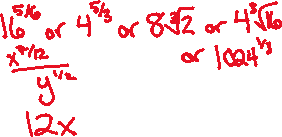 16^5/6 or 4^5/3 or 8∛2 or 4∛16
or 1024^1/3
x
y^1/2
12x